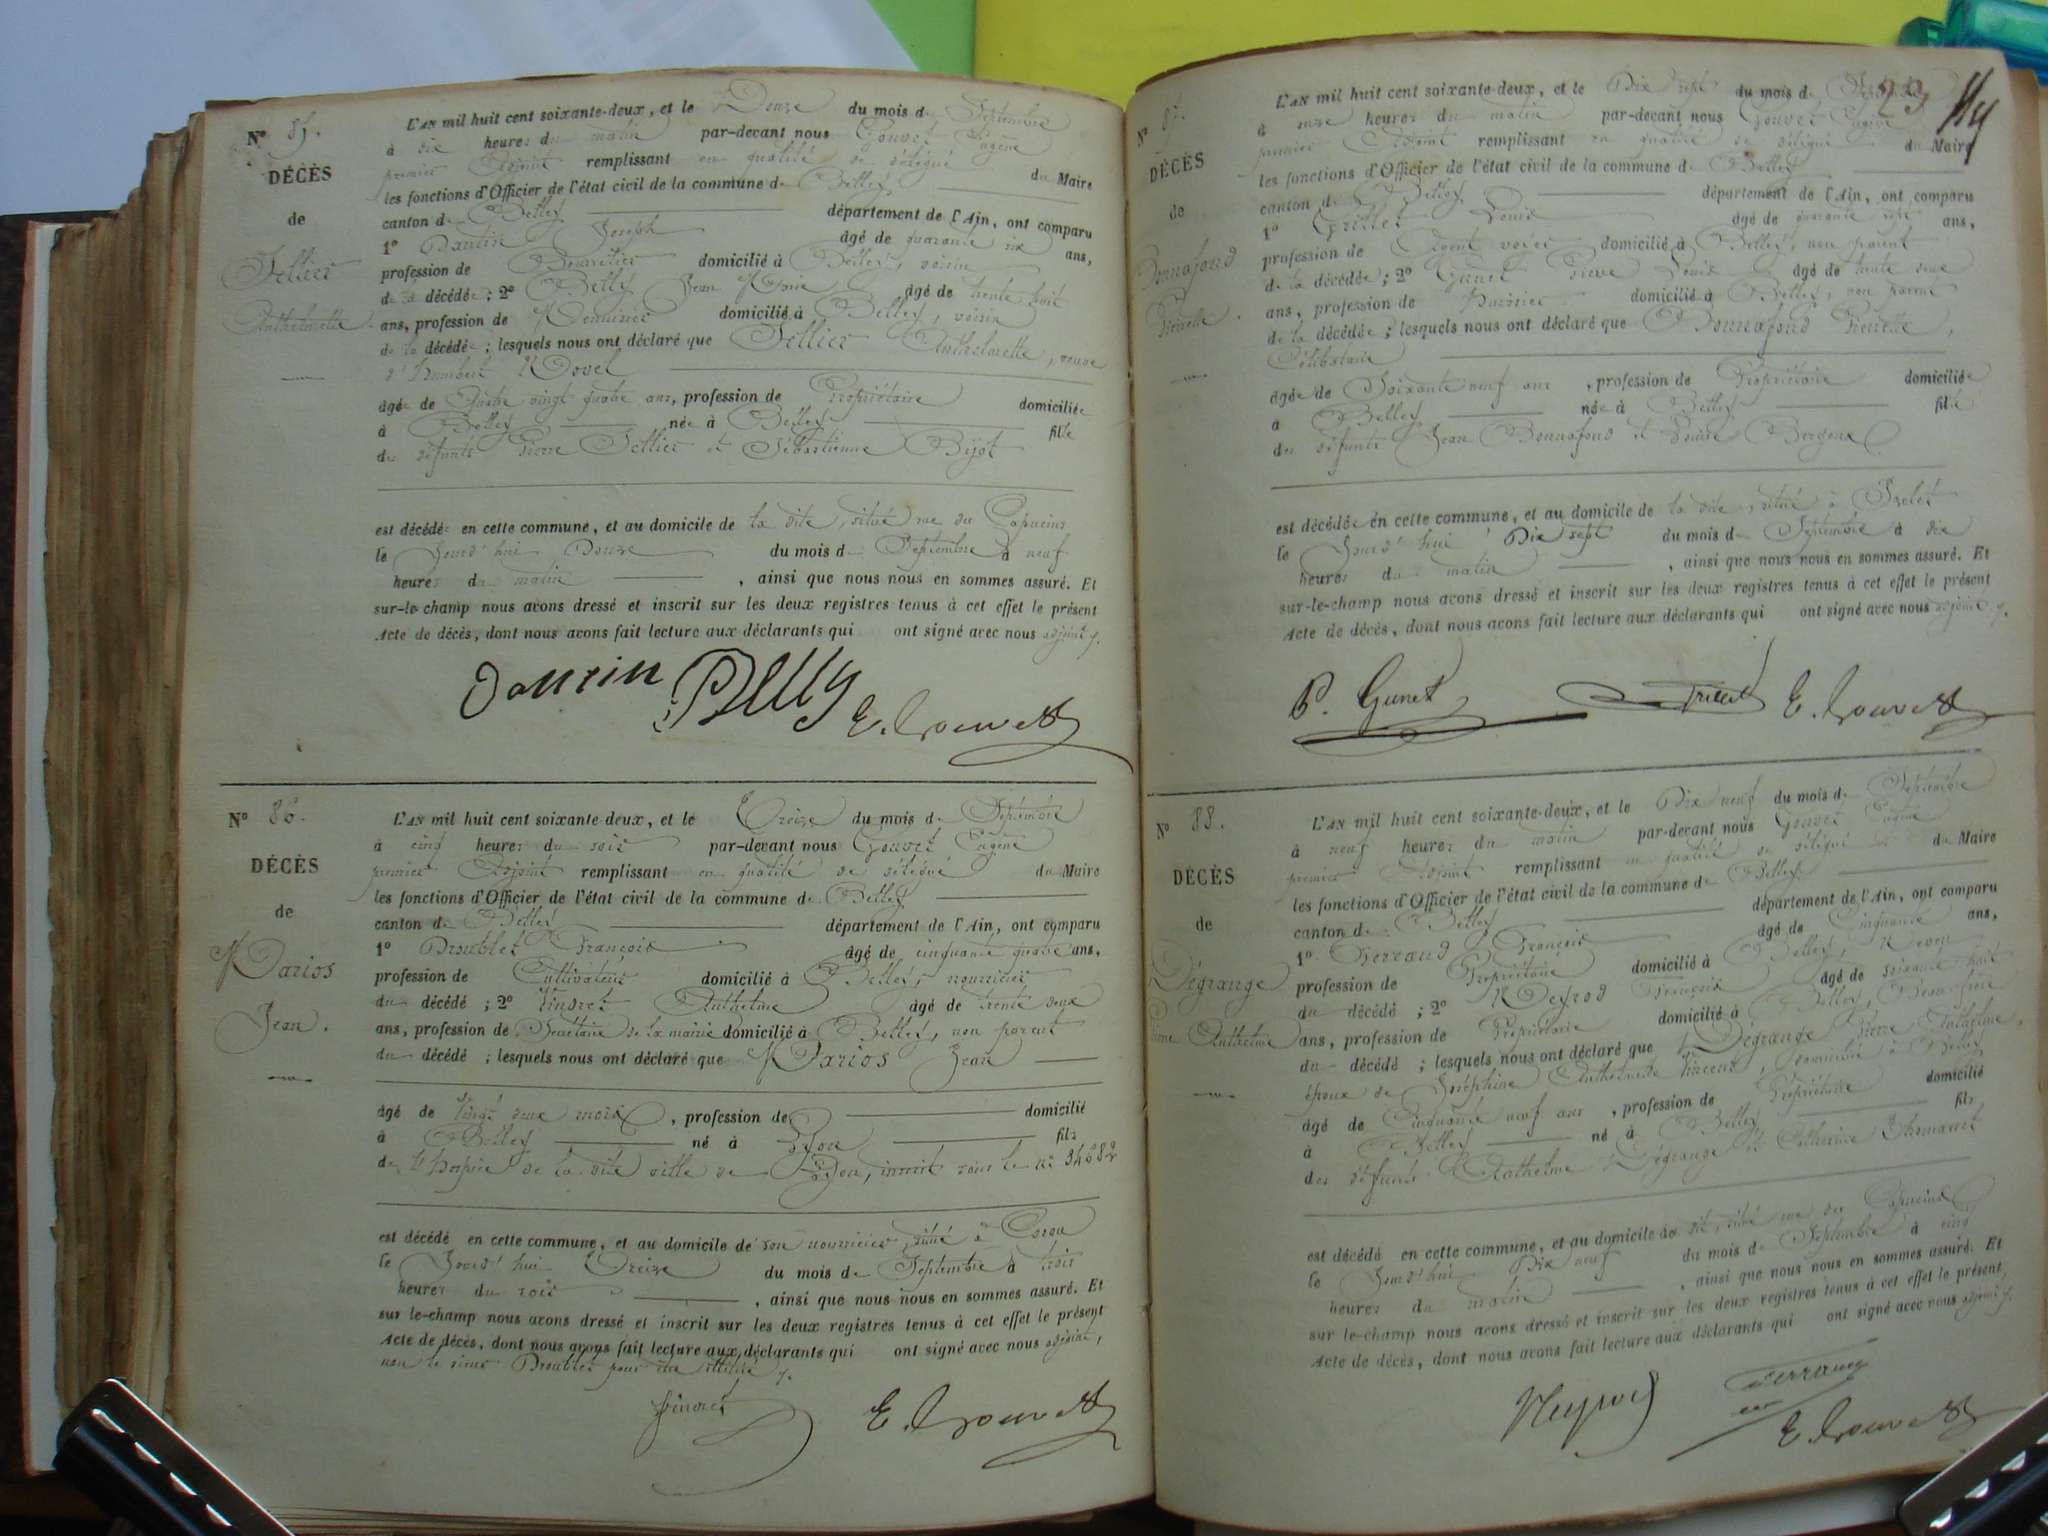 N° 85.
DÉCÈS
de
Tellier
Anthelmette
L'AN mil huit cent soixante-deux, et le Douze du mois de Septembre
à dix heures du matin par-devant nous Gouvet Eugène
premier Adjoint remplissant en qualité de délégué du Maire
les fonctions d'Officier de l'état civil de la commune de Belley
canton de Belley département de l'Ain, ont comparu
1° Dantin Joseph âgé de quarante six ans,
profession de domicilié à Belley, voisin
de la décédée ; 2° Belly Jean âgé de trente huit
ans, profession de Menuisier domicilié à Belley, voisin
de la décédée ; lesquels nous ont déclaré que Tellier Anthelmette, veuve
d'Humbert
âgée de Quatre vingt quatre ans, profession de Propriétaire domiciliée
à Belley née à Belley fille
des défunts Pierre Tellier et Sébastienne Bijot
est décédée en cette commune, et au domicile de la dite, situé rue des Capucins
le Jourd'hui Douze du mois de Septembre à neuf
heures du matin , ainsi que nous nous en sommes assuré. Et
sur-le-champ nous avons dressé et inscrit sur les deux registres tenus à cet effet le présent
Acte de décès, dont nous avons fait lecture aux déclarants qui ont signé avec nous adjoint
Belly E. Gouvet
N° 86.
DÉCÈS
de
Marios
Jean.
L'AN mil huit cent soixante-deux, et le Treize du mois de Septembre
à cinq heures du soir par-devant nous Gouvet Eugène
premier Adjoint remplissant en qualité de délégué du Maire
les fonctions d'Officier de l'état civil de la commune de Belley
canton de Belley département de l'Ain, ont comparu
1° Droublet François âgé de cinquante quatre ans,
profession de Cultivateur domicilié à Belley, nourricier
du décédé ; 2° Vindret Anthelme âgé de trente deux
ans, profession de Secrétaire de la mairie domicilié à Belley, non parent
du décédé ; lesquels nous ont déclaré que Marios Jean
âgé de Vingt deux mois, profession de domicilié
à Belley né à Lyon fils
de l'hospice de la dite ville de Lyon, inscrit sous le n° 34682
est décédé en cette commune, et au domicile de son nourricier, situé à Coron
le Jourd'hui Treize du mois de Septembre à trois
heures du soir , ainsi que nous nous en sommes assuré. Et
sur-le-champ nous avons dressé et inscrit sur les deux registres tenus à cet effet le présent
Acte de décès, dont nous avons fait lecture aux déclarants qui ont signé avec nous adjoint,
non le sieur Droublet pour être illitéré
E. Gouvet
23
N° 87.
DÉCÈS
de
Bonnafond
Pierrette.
L'AN mil huit cent soixante-deux, et le Dix sept du mois de Septembre
à onze heures du matin par-devant nous Gouvet Eugène
premier Adjoint remplissant en qualité de délégué du Maire
les fonctions d'Officier de l'état civil de la commune de Belley
canton de Belley département de l'Ain, ont comparu
1° Trillet Louis âgé de quarante sept ans,
profession de Agent voyer domicilié à Belley, non parent
de la décédée ; 2° Gunet Pierre Louis âgé de trente deux
ans, profession de Huissier domicilié à Belley, non parent
de la décédée ; lesquels nous ont déclaré que Bonnafond Pierrette,
Célibataire
âgée de Soixante neuf ans, profession de Propriétaire domiciliée
à Belley née à Belley fille
des défunts Jean Bonnafond et Louise
est décédée en cette commune, et au domicile de la dite, situé à
le Jourd'hui Dix sept du mois de Septembre à dix
heures du matin , ainsi que nous nous en sommes assuré. Et
sur-le-champ nous avons dressé et inscrit sur les deux registres tenus à cet effet le présent
Acte de décès, dont nous avons fait lecture aux déclarants qui ont signé avec nous adjoint
P. Gunet Trillet E. Gouvet
N° 88.
DÉCÈS
de
Dégrange
Anthelme
L'AN mil huit cent soixante-deux, et le Dix neuf du mois de Septembre
à neuf heures du matin par-devant nous Gouvet Eugène
premier Adjoint remplissant en qualité de délégué du Maire
les fonctions d'Officier de l'état civil de la commune de Belley
canton de Belley département de l'Ain, ont comparu
1° Ferrand François âgé de Cinquante ans,
profession de Propriétaire domicilié à Belley, Neveu
du décédé ; 2° Neyrod François âgé de soixante huit
ans, profession de Propriétaire domicilié à Belley, Beau frère
du décédé ; lesquels nous ont déclaré que Dégrange Pierre Anthelme,
époux de Joséphine Anthelmette Vincent, domiciliée à Belley
âgé de Cinquante neuf ans, profession de Propriétaire domicilié
à Belley né à Belley fils
des défunts Anthelme Dégrange et Catherine
est décédé en cette commune, et au domicile du dit, situé rue des Capucins
le Jourd'hui Dix neuf du mois de Septembre à cinq
heures du matin , ainsi que nous nous en sommes assuré. Et
sur-le-champ nous avons dressé et inscrit sur les deux registres tenus à cet effet le présent
Acte de décès, dont nous avons fait lecture aux déclarants qui ont signé avec nous adjoint
Neyrod Ferrand
E. Gouvet